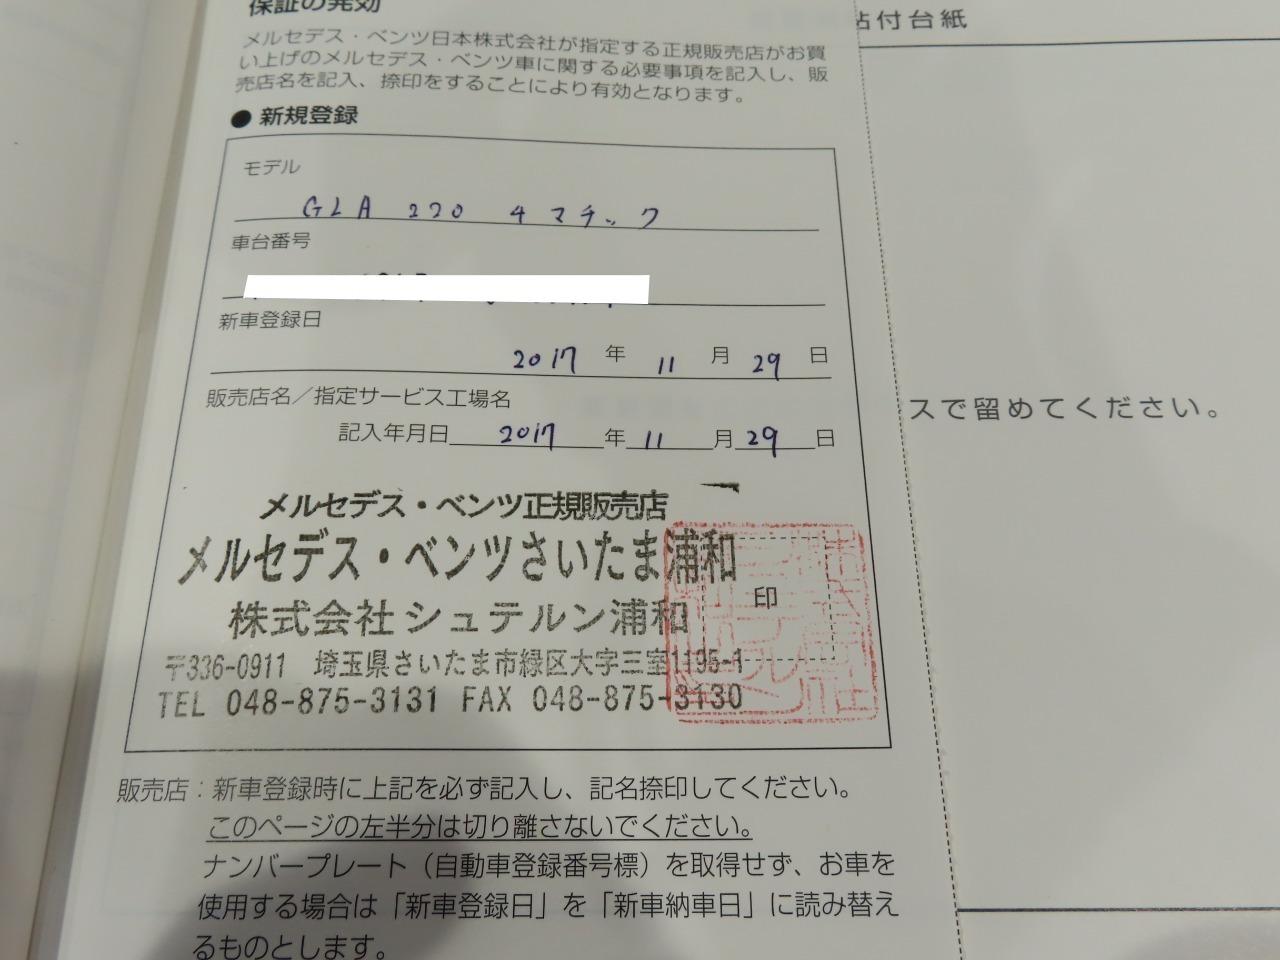 保証の発効
メルセデス・ベンツ日本株式会社が指定する正規販売店がお買
い上げのメルセデス・ベンツ車に関する必要事項を記入し、販
売店名を記入、捺印をすることにより有効となります。
● 新規登録
モデル
GLA 220 4マチック
車台番号
新車登録日
2017 年 11 月 29 日
販売店名／指定サービス工場名
記入年月日 2017 年 11 月 29 日
メルセデス・ベンツ正規販売店
メルセデス・ベンツさいたま浦和
株式会社シュテルン浦和
印
〒336-0911 埼玉県さいたま市緑区大字三室1195-1
TEL 048-875-3131 FAX 048-875-3130
販売店：新車登録時に上記を必ず記入し、記名捺印してください。
このページの左半分は切り離さないでください。
ナンバープレート（自動車登録番号標）を取得せず、お車を
使用する場合は「新車登録日」を「新車納車日」に読み替え
るものとします。
貼付台紙
スで留めてください。